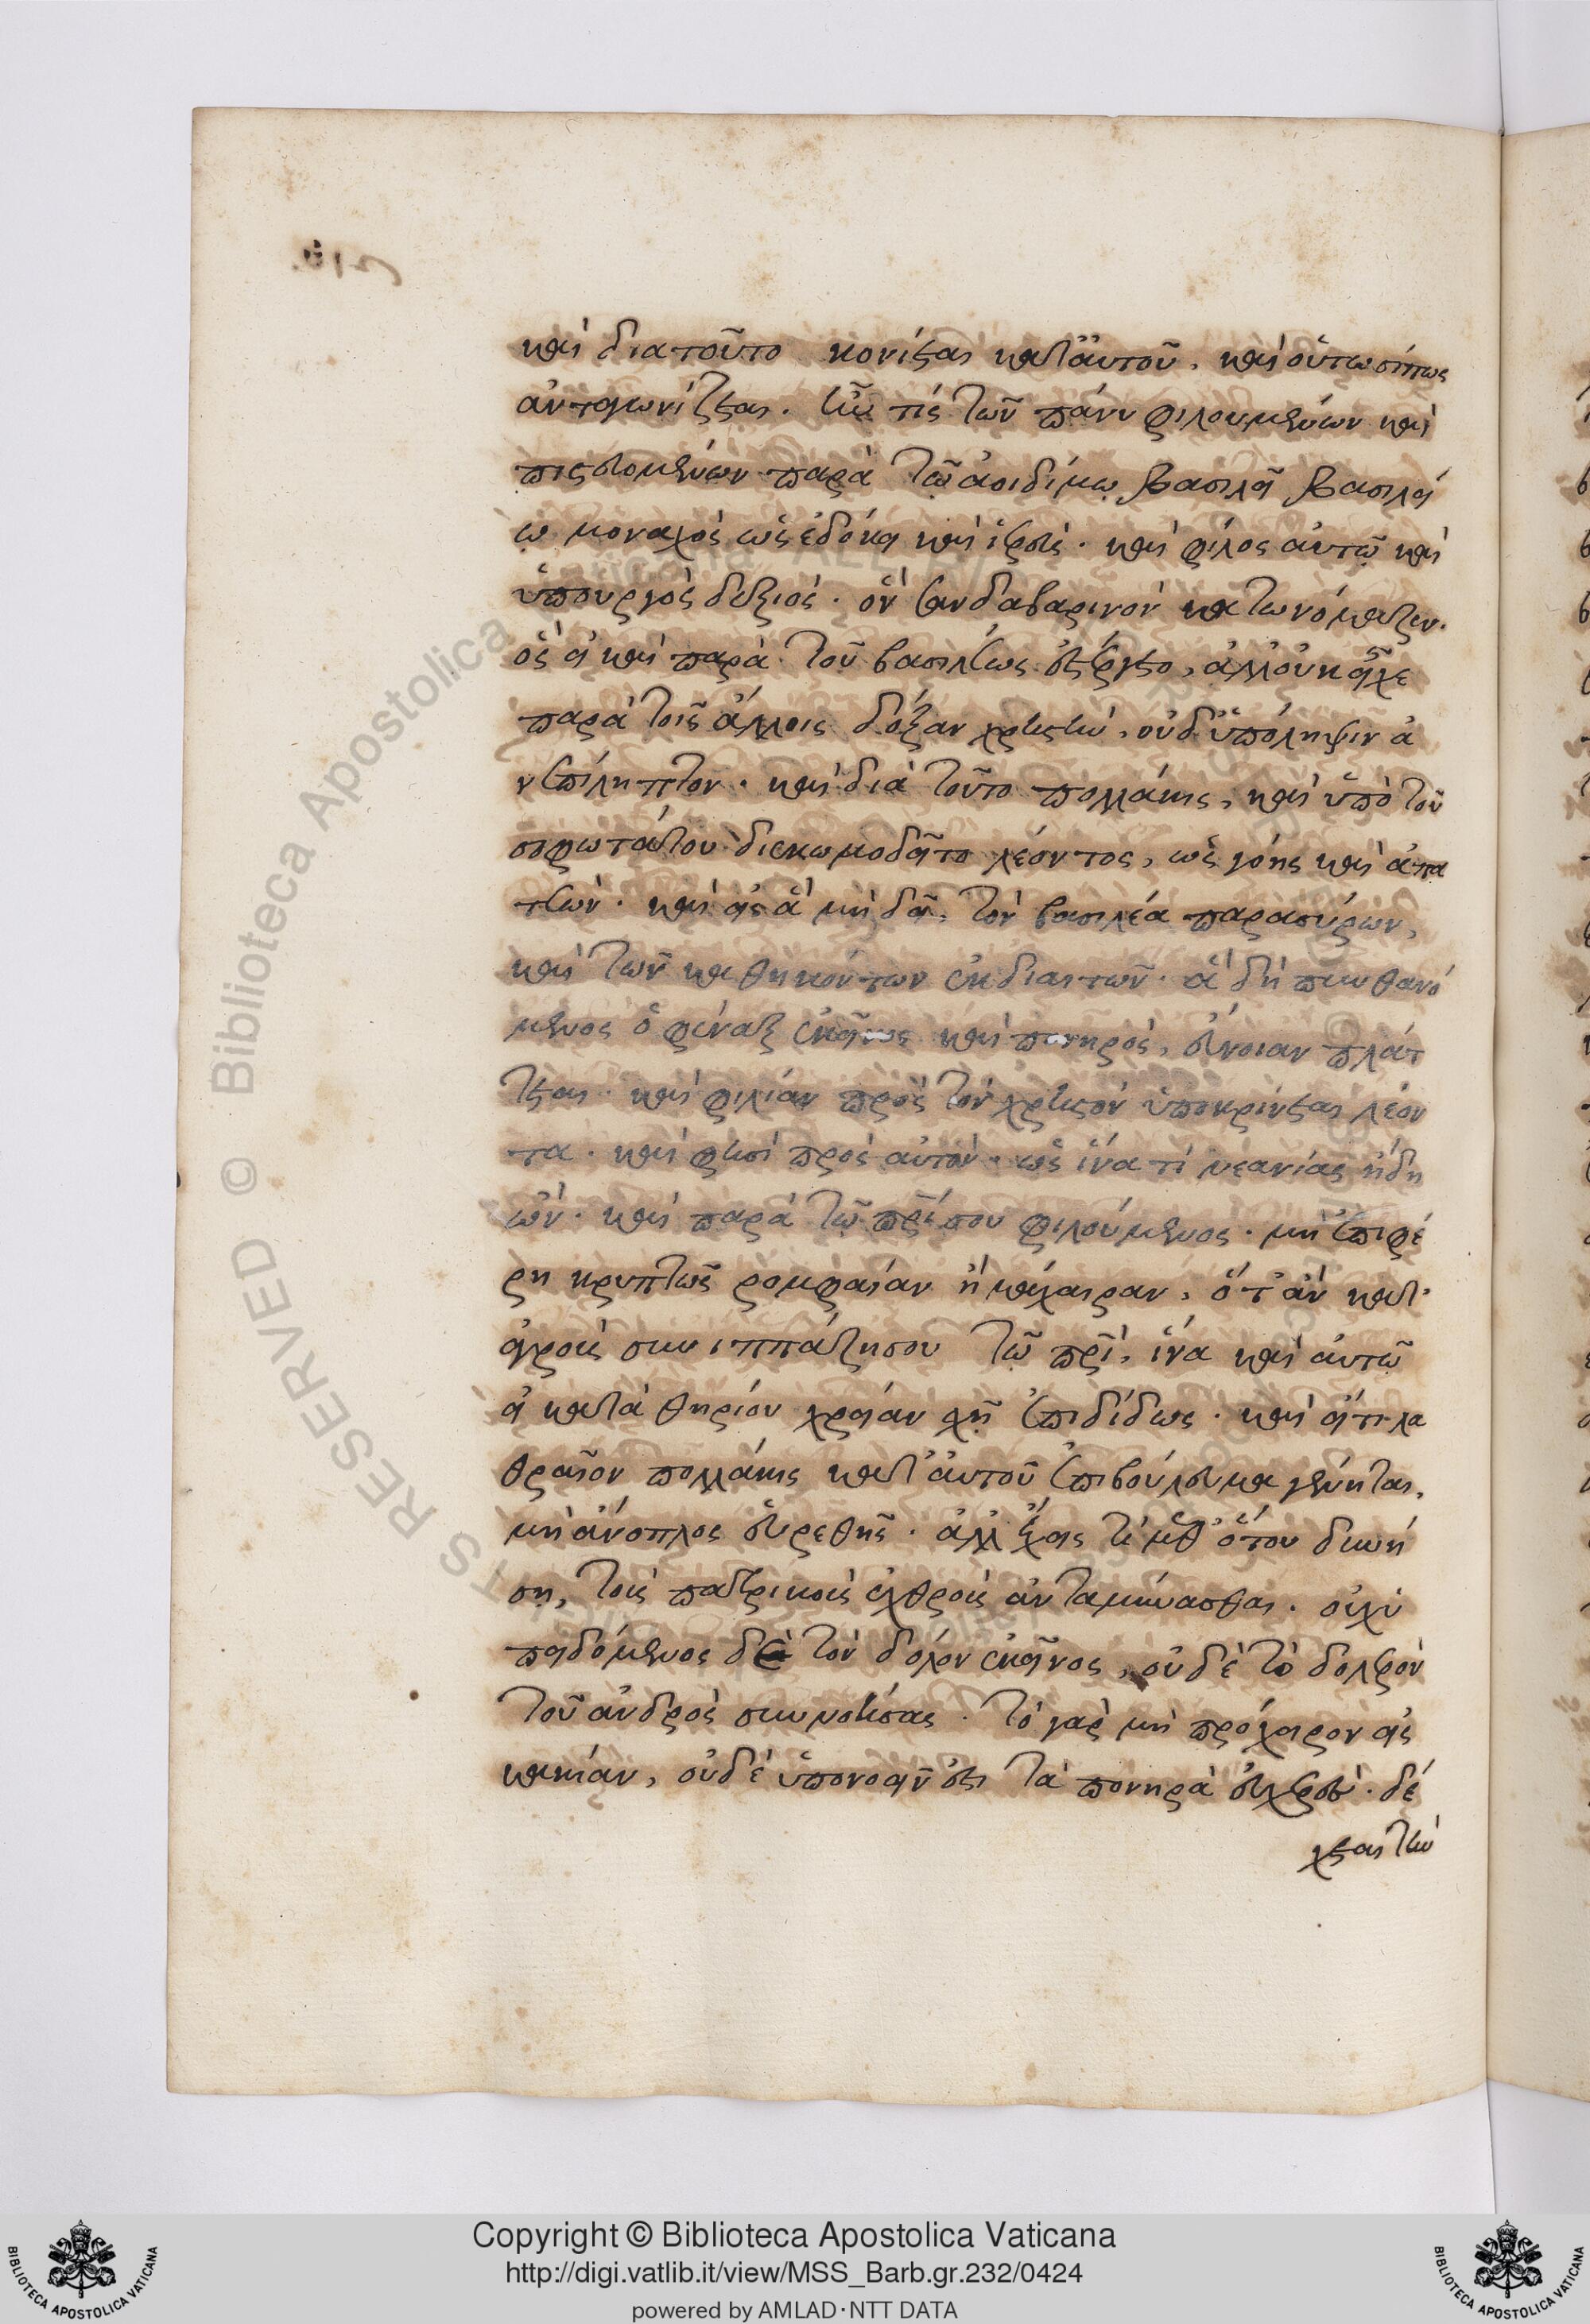 καὶ διατοῦτο κονίεται κατ᾽ αὐτοῦ. καὶ οὑτωσίπως
ἀνταγωνίζεται. ἦν τίς τῶν πάνυ φιλουμένων καὶ
πιστουμένων παρὰ τῷ ἀοιδίμῳ βασιλεῖ βασιλεί
ῳ μοναχὸς ὡς ἐδόκει καὶ ἱερεὺς. καὶ φίλος αὐτῷ καὶ
ὑπουργὸς δεξιός. ὃν σανδαβαρινὸν κατωνόμαζεν.
ὃς εἰ καὶ παρὰ τοῦ βασιλέως ἐστέργετο, ἀλλ᾽ οὐκ εἶχε
παρὰ τοῖς ἄλλοις δόξαν χρηστὴν, οὐδ᾽ ὑπόληψιν ἀ
νεπίληπτον. καὶ διὰ τοῦτο πολλάκις, καὶ ὑπὸ τοῦ
σοφωτάτου διεκωμῳδεῖτο λέοντος, ὡς γόης καὶ ἀπα
τεών. καὶ εἰς ἃ μὴ δεῖ, τὸν βασιλέα παρασύρων,
καὶ τῶν καθηκόντων ἐκδιαιτῶν. ἃ δὴ πυνθανό
μενος ὁ φέναξ ἐκεῖνος καὶ πονηρός, εὔνοιαν πλάτ
τεται. καὶ φιλίαν πρὸς τὸν χρηστὸν ὑποκρίνεται λέον
τα. καὶ φησὶ πρὸς αὐτὸν. ὡς ἵνα τί νεανίας ἤδη
ὢν. καὶ παρὰ τῷ πρί σου φιλούμενος. μὴ ἐπιφέ
ρῃ κρυπτῶς ρομφαίαν ἢ μάχαιραν, ὅτ᾽ ἂν κατ᾽
ἀγροὺς συνιππάζῃ σου τῷ πρὶ, ἵνα καὶ αὐτῷ
εἰ κατὰ θηρίου χρείαν ἔχῃ ἐπιδίδως. καὶ εἴ τι λα
θραῖον πολλάκις κατ᾽ αὐτοῦ ἐπιβούλευμα γένηται,
μὴ ἄνοπλος εὑρεθῇς. ἀλλ᾽ ἔχεις τὶ μεθ᾽ ὅτου δυνή
σῃ, τοὺς πατρικοὺς ἐχθροὺς ἀνταμύνασθαι. οὐχ ὑ
πειδόμενος δὲ τὸν δόλον ἐκεῖνος, οὐδὲ τὸ δολερὸν
τοῦ ἀνδρὸς συννοήσας. τὸ γὰρ μὴ πρόχειρον εἰς
κακίαν, οὐδὲ ὑπονοεῖν ἔτι τὰ πονηρὰ εὐχερὲς. δέ
χεται τὴν